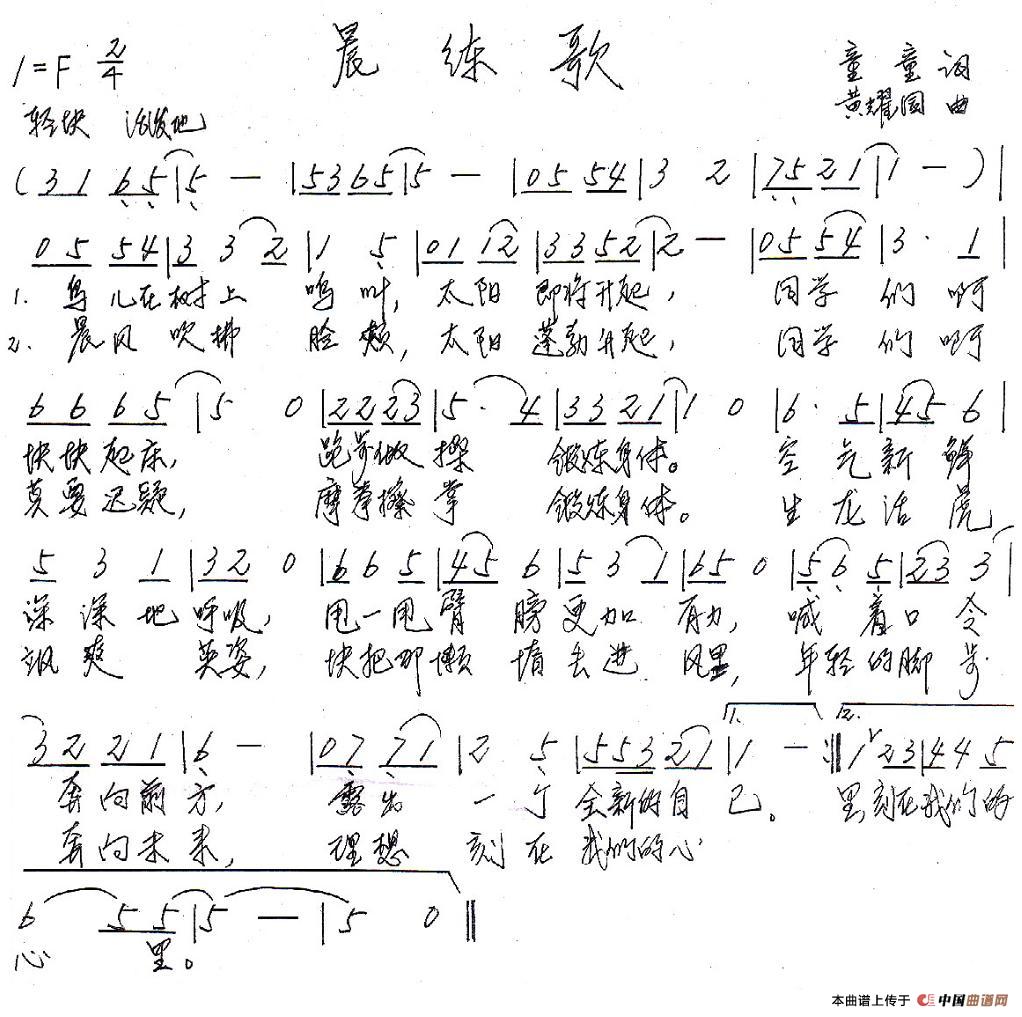 晨 练 歌
1=F 2/4
童 童 词
黄耀国 曲
轻快 活泼地
( 3 1 6 5 | 5 — | 5 3 6 5 | 5 — | 0 5 5 4 | 3 2 | 7 5 2 1 | 1 — ) |
0 5 5 4 | 3 3 2 | 1 5 | 0 1 1 2 | 3 3 5 2 | 2 — | 0 5 5 4 | 3 · 1 |
1. 鸟儿在树上 鸣叫, 太阳 即将升起, 同学 们 啊
2. 晨风 吹拂 脸颊, 太阳 蓬勃升起, 同学 们 啊
6 6 6 5 | 5 0 | 2 2 2 3 | 5 · 4 | 3 3 2 1 | 1 0 | 6 · 5 | 4 5 6 |
快快起床, 跑步做操 锻炼身体。 空气新鲜
莫要迟疑, 摩拳擦掌 锻炼身体。 生龙活虎
5 3 1 | 3 2 0 | 6 6 5 | 4 5 6 | 5 3 1 | 6 5 0 | 5 6 5 | 2 3 3 |
深深地呼吸, 甩一甩臂膀更加有力, 喊着口令
飒爽 英姿, 快把那懒惰丢进风里, 年轻的脚步
1. 2.
3 2 2 1 | 6 — | 0 7 7 1 | 2 5 | 5 5 3 2 1 | 1 — :‖ 1 2 3 | 4 4 5
奔向前方, 露出 一个全新的自己。 里刻在我们的
奔向未来, 理想 刻在我们的心
6 5 5 | 5 — | 5 0 ‖
心 里。
本曲谱上传于 中国曲谱网